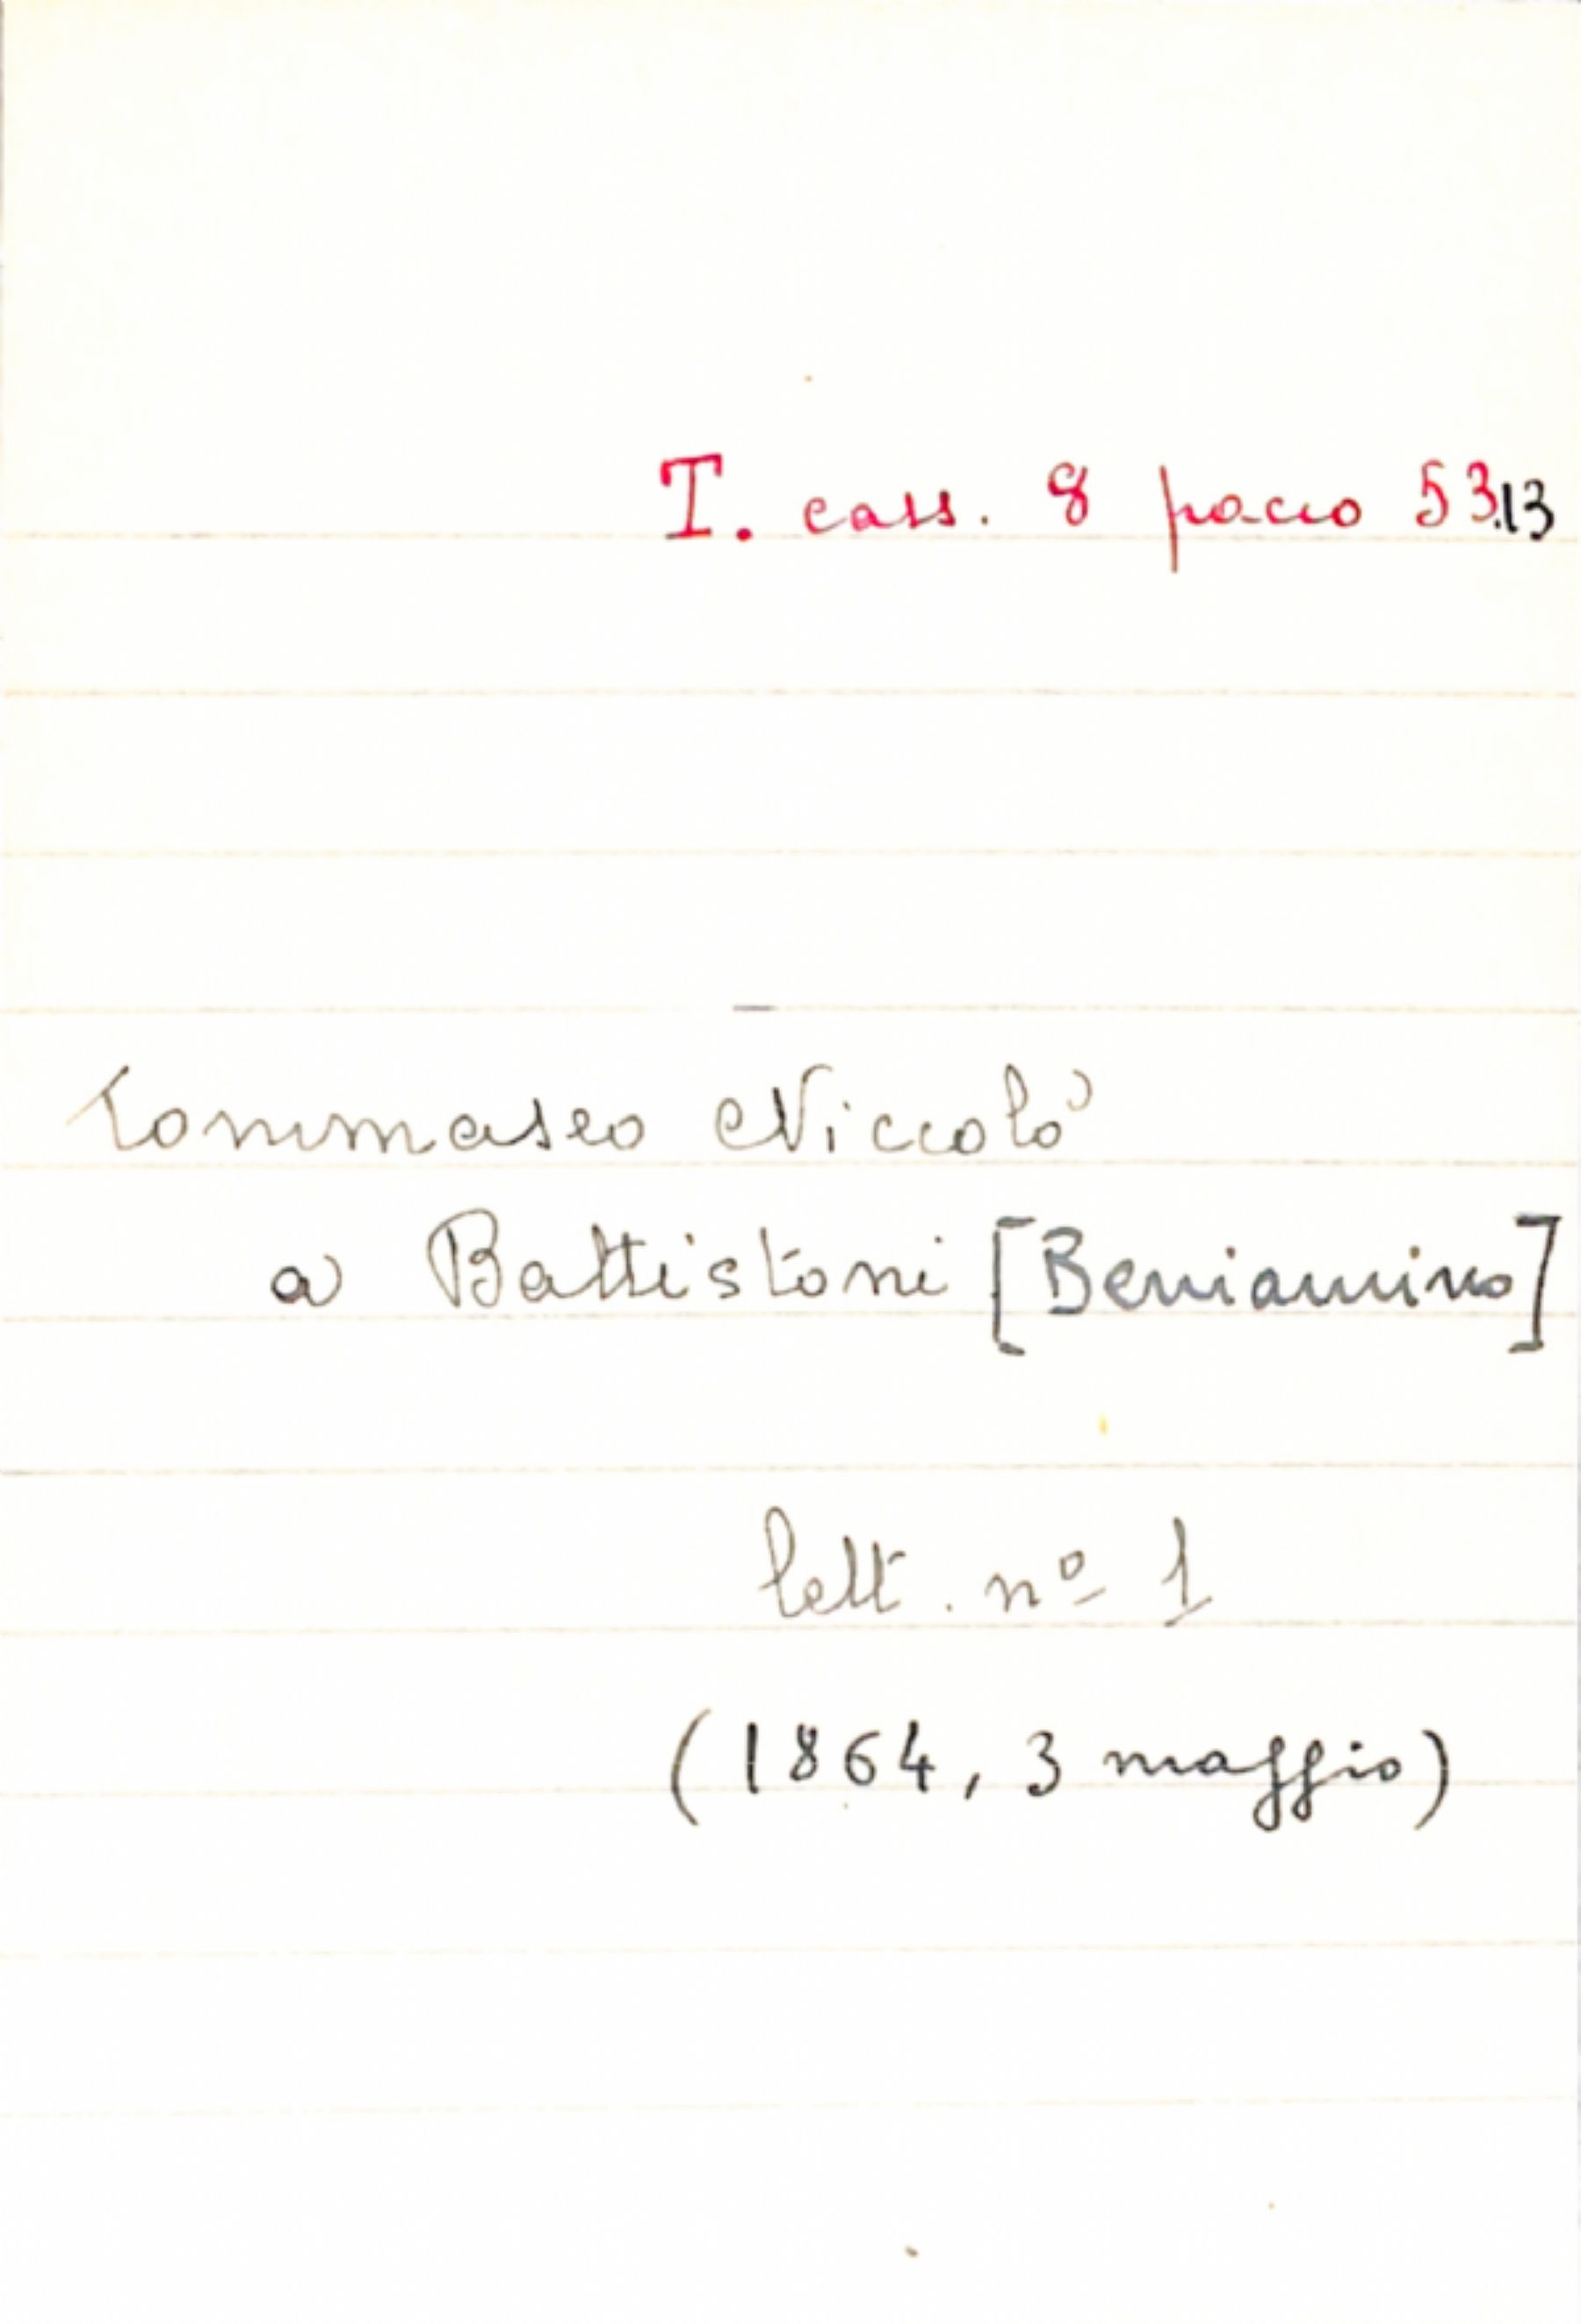 T. cass. 8 pacco 53.13
Tommaseo Niccolò
a Battistoni [Beniamino]
lett. nº 1
(1864, 3 maggio)